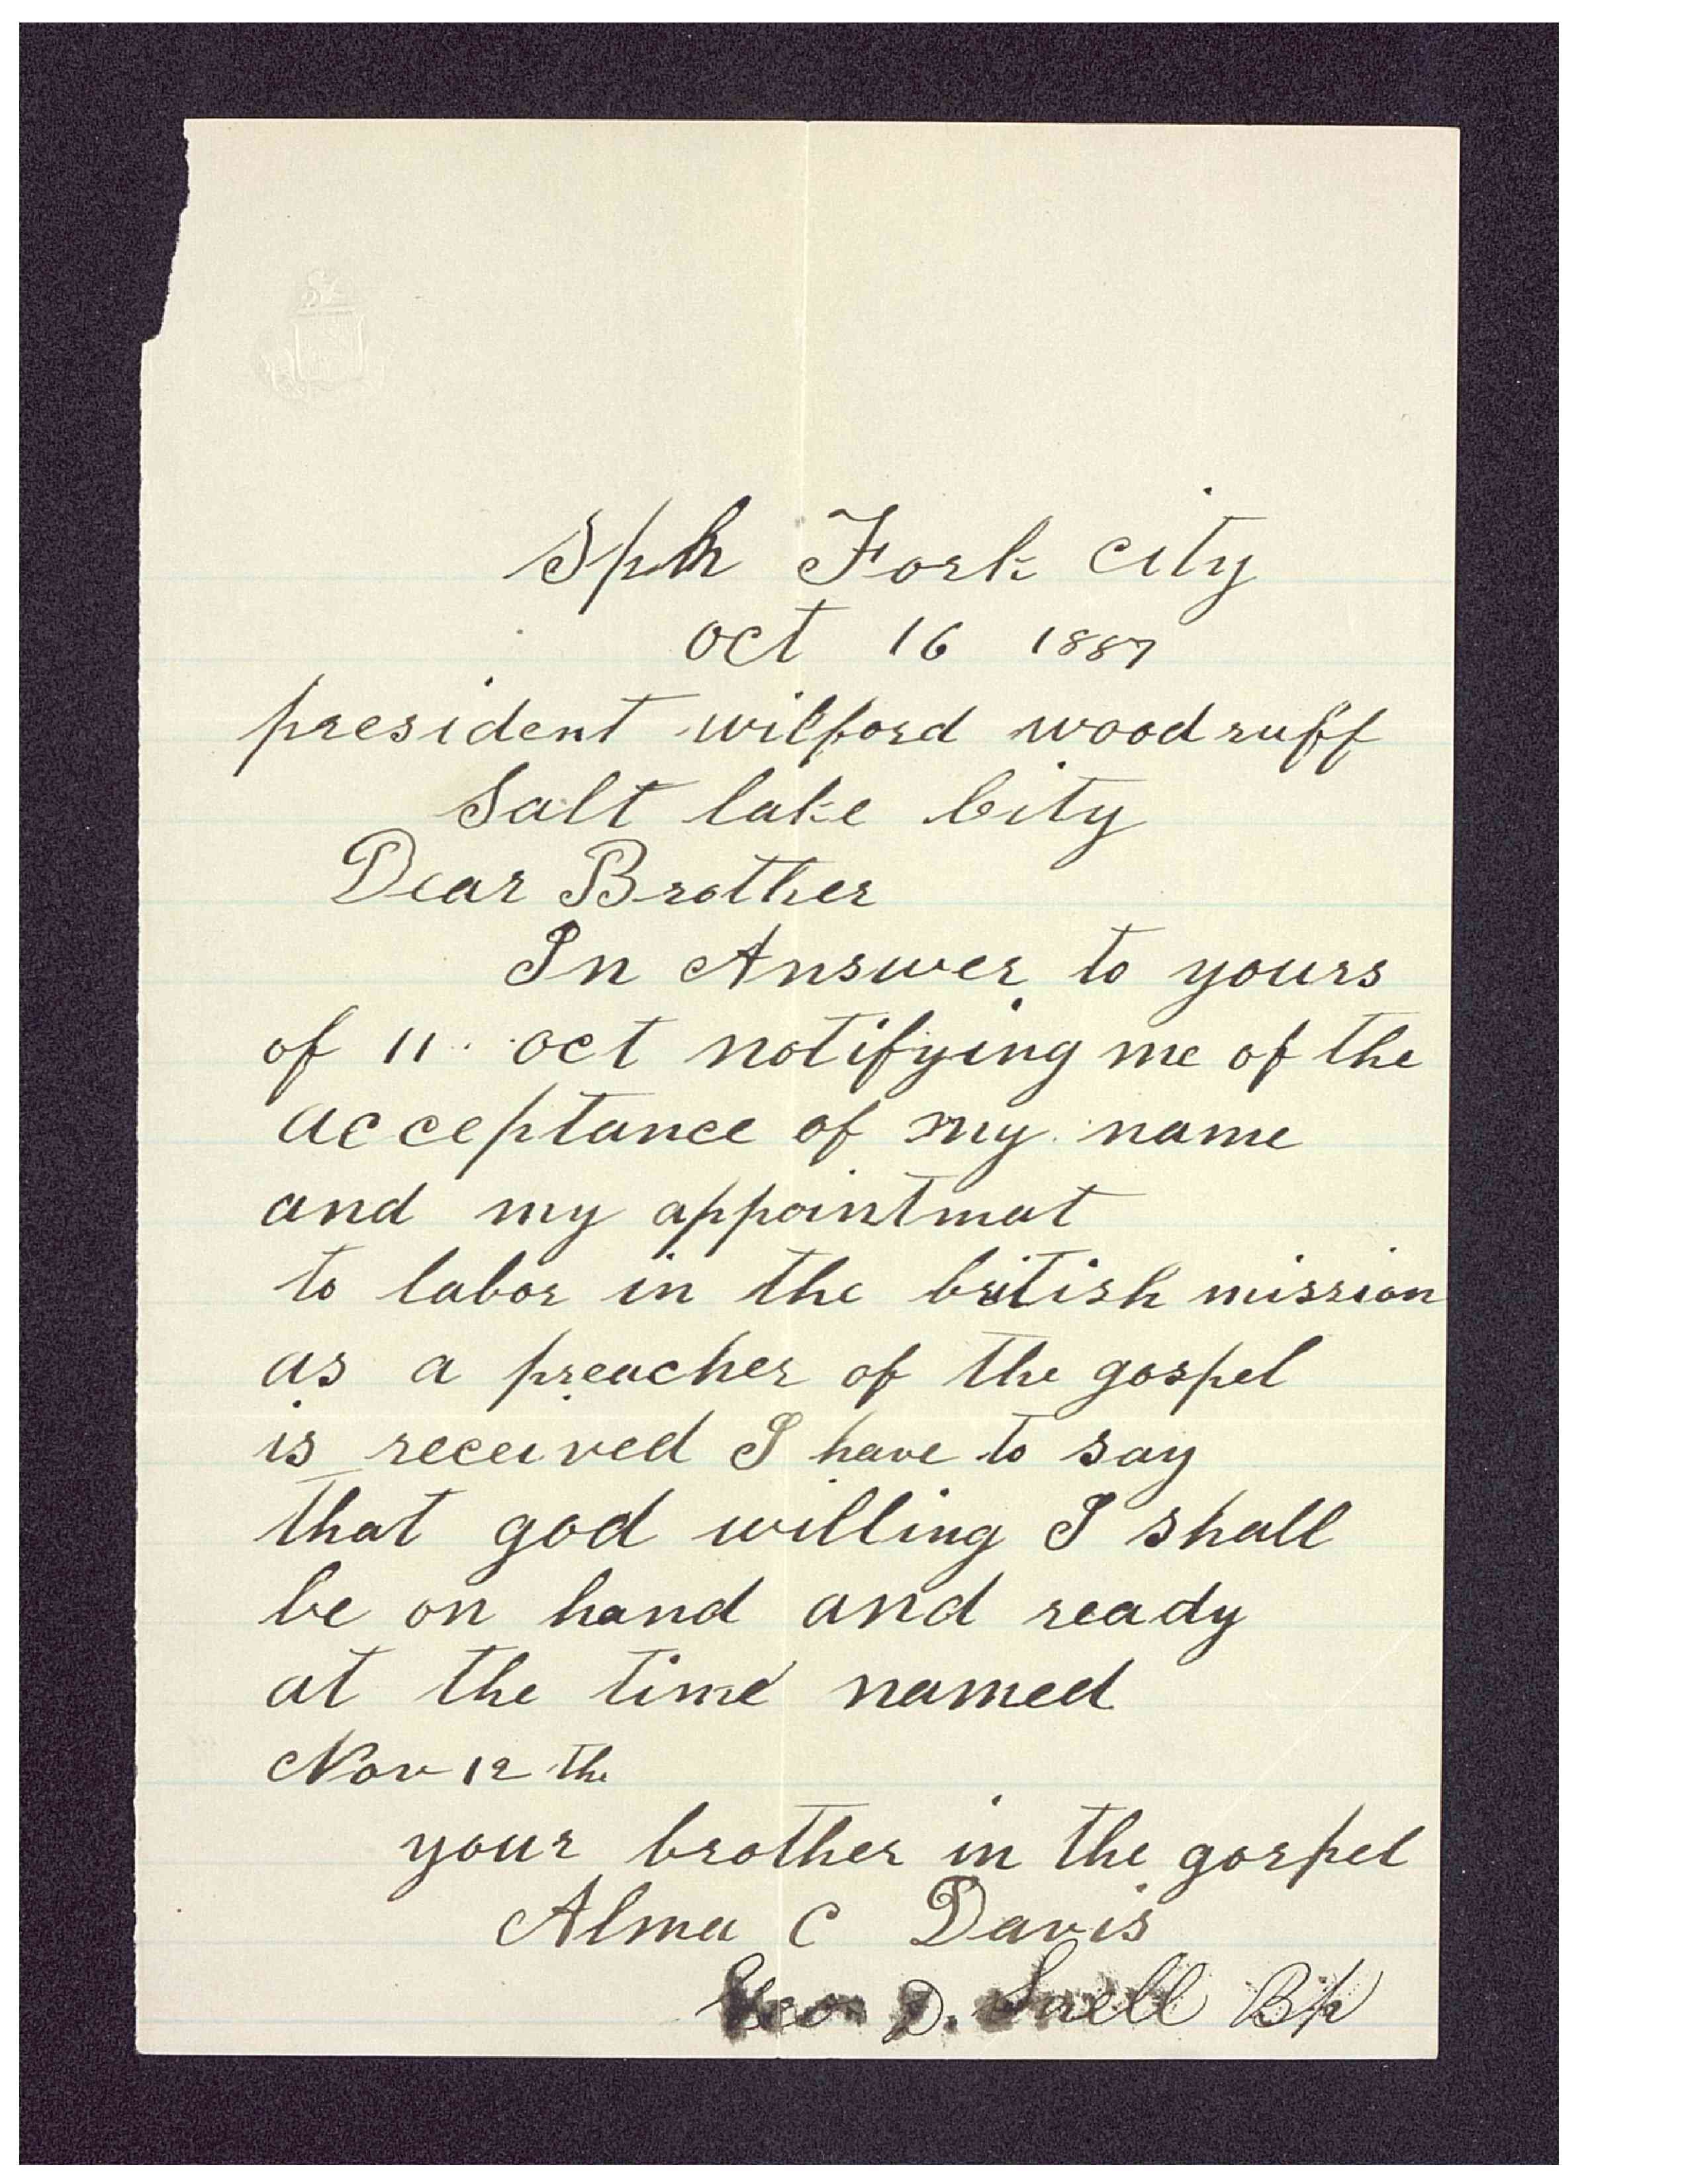 Sph Fork city
oct 16 1887
president wilford woodruff
Salt lake City
Dear Brother
In Answer to yours
of 11 oct notifying me of the
acceptance of my name
and my appointmat
to labor in the british mission
as a preacher of the gospel
is received I have to say
that god willing I shall
be on hand and ready
at the time named
Nov 12 th
your brother in the gospel
Alma C Davis
Geo D. Snell Bp